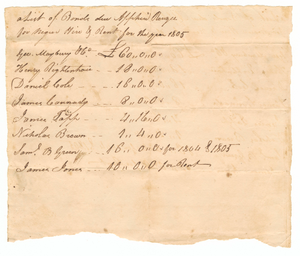 a List of Bonds due
for Negro Hire & Rent for the year 1805
Geo. Maybury & Co £60..0..0
Henry 18..0..0
Daniel Cole 16..0..0
James Connady 8..0..0
James Tapp 4..16..0
Nicholas Brown 9..4..0
Saml. B Green 16..0..0 for 1804 & 1805
James Jones 10..0..0 for Rent